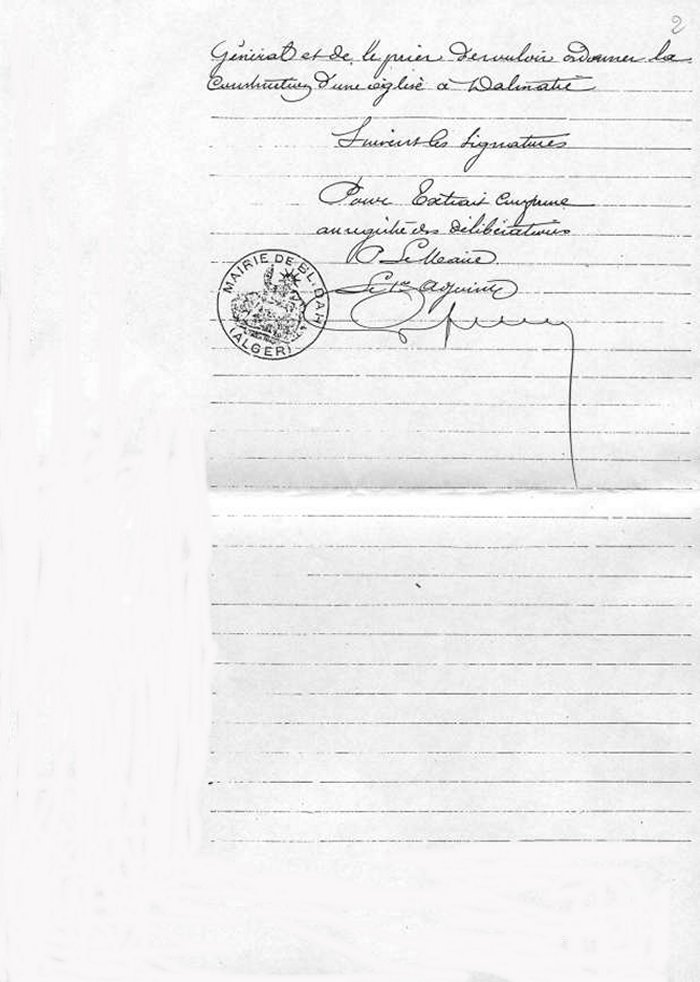 2
Général et de le prier de vouloir ordonner la
Construction d'une église à Dalmatie
Suivent les signatures
Pour Extrait conforme
au registre des délibérations
P. Le Maire
Le 1er adjoint
MAIRIE DE BLIDAH
(ALGER)